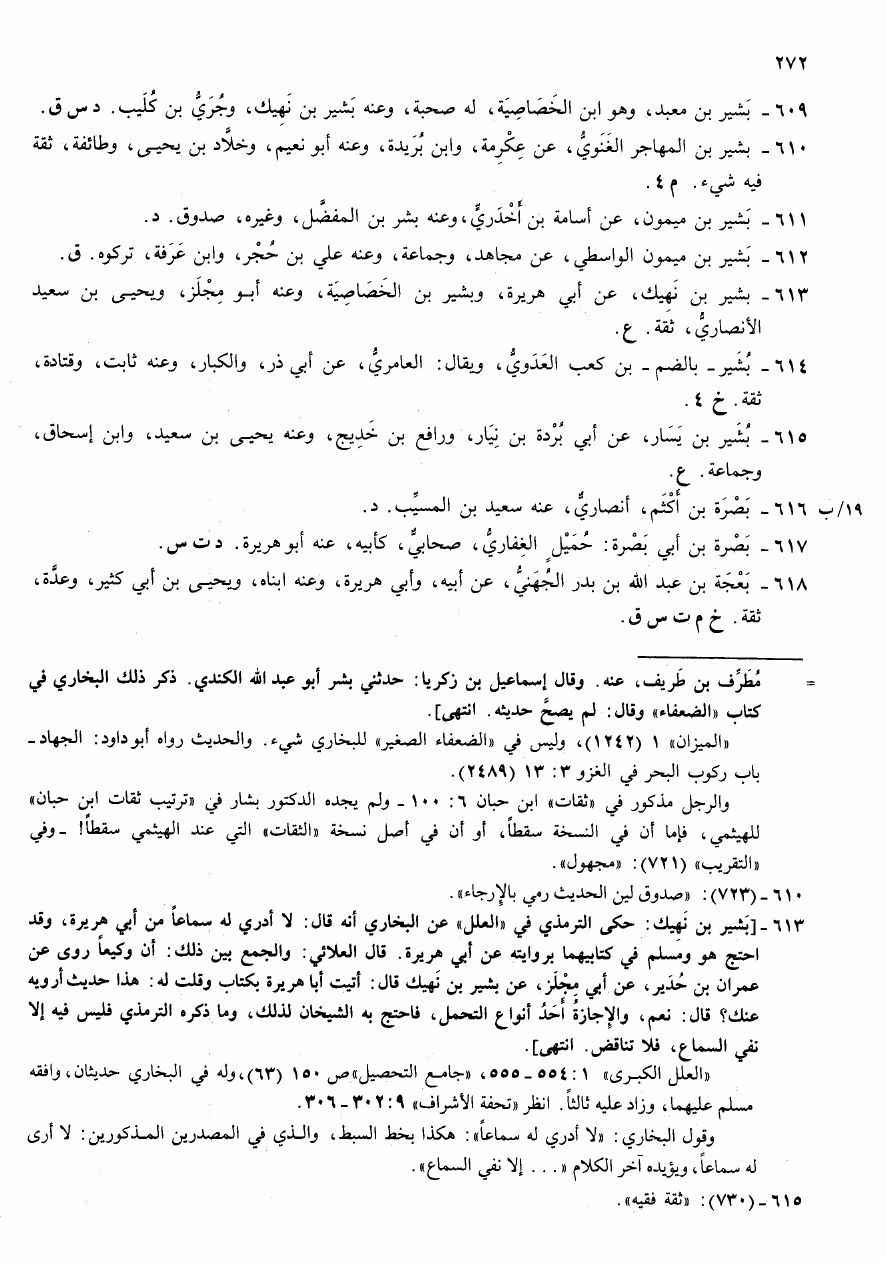 ٢٧٢
٦٠٩ - بَشير بن معبد، وهو ابن الخَصَاصِيَة، له صحبة، وعنه بَشير بن نَهِيك، وجُرَيُّ بن كُلَيب. د س ق.
٦١٠ - بشير بن المهاجر الغَنَويُّ، عن عِكْرِمة، وابن بُرَيدة، وعنه أبو نعيم، وخلَّاد بن يحيى، وطائفة، ثقة
فيه شيء. م ٤.
٦١١ - بَشير بن ميمون، عن أسامة بن أَخْدَريٍّ، وعنه بشر بن المفضَّل، وغيره، صدوق. د.
٦١٢ - بَشير بن ميمون الواسطي، عن مجاهد، وجماعة، وعنه علي بن حُجْر، وابن عَرَفة، تركوه. ق.
٦١٣ - بشير بن نَهِيك، عن أبي هريرة، وبشير بن الخَصَاصِيَة، وعنه أبو مِجْلَز، ويحيى بن سعيد
الأنصاريُّ، ثقة. ع.
٦١٤ - بُشَير - بالضم - بن كعب العَدَويُّ، ويقال: العامريُّ، عن أبي ذر، والكبار، وعنه ثابت، وقتادة،
ثقة. خ ٤.
٦١٥ - بُشَير بن يَسَار، عن أبي بُرْدة بن نِيَار، ورافع بن خَدِيج، وعنه يحيى بن سعيد، وابن إسحاق،
وجماعة. ع.
١٩/ب ٦١٦ - بَصْرَة بن أَكْثَم، أنصاريٌّ، عنه سعيد بن المسيِّب. د.
٦١٧ - بَصْرة بن أبي بَصْرة: حُمَيْلٍ الغِفاريُّ، صحابيٌّ، كأبيه، عنه أبو هريرة. د ت س.
٦١٨ - بَعْجَة بن عبد الله بن بدر الجُهَنيُّ، عن أبيه، وأبي هريرة، وعنه ابناه، ويحيى بن أبي كثير، وعدَّة،
ثقة. خ م ت س ق.
= مُطَرِّف بن طَريف، عنه. وقال إسماعيل بن زكريا: حدثني بشر أبو عبد الله الكندي. ذكر ذلك البخاري في
كتاب «الضعفاء» وقال: لم يصحَّ حديثه. انتهى].
«الميزان» ١ (١٢٤٢)، وليس في «الضعفاء الصغير» للبخاري شيء. والحديث رواه أبو داود: الجهاد -
باب ركوب البحر في الغزو ٣: ١٣ (٢٤٨٩).
والرجل مذكور في «ثقات» ابن حبان ٦: ١٠٠ - ولم يجده الدكتور بشار في «ترتيب ثقات ابن حبان»
للهيثمي، فإما أن في النسخة سقطاً، أو أن في أصل نسخة «الثقات» التي عند الهيثمي سقطاً! - وفي
«التقريب» (٧٢١): «مجهول».
٦١٠ - (٧٢٣): «صدوق لين الحديث رمي بالإرجاء».
٦١٣ - [بَشير بن نَهيك: حكى الترمذي في «العلل» عن البخاري أنه قال: لا أدري له سماعاً من أبي هريرة، وقد
احتج هو ومسلم في كتابيهما بروايته عن أبي هريرة. قال العلائي: والجمع بين ذلك: أن وكيعاً روى عن
عمران بن حُدَير، عن أبي مِجْلَز، عن بشير بن نَهيك قال: أتيت أبا هريرة بكتاب وقلت له: هذا حديث أرويه
عنك؟ قال: نعم، والإجازةُ أَحَدُ أنواع التحمل، فاحتج به الشيخان لذلك، وما ذكره الترمذي فليس فيه إلا
نفي السماع، فلا تناقض. انتهى].
«العلل الكبرى» ١: ٥٥٤ - ٥٥٥، «جامع التحصيل» ص ١٥٠ (٦٣)، وله في البخاري حديثان، وافقه
مسلم عليهما، وزاد عليه ثالثاً. انظر «تحفة الأشراف» ٩: ٣٠٢ - ٣٠٦.
وقول البخاري: «لا أدري له سماعاً»: هكذا بخط السبط، والذي في المصدرين المذكورين: لا أرى
له سماعاً، ويؤيده آخر الكلام «... إلا نفي السماع».
٦١٥ - (٧٣٠): «ثقة فقيه».